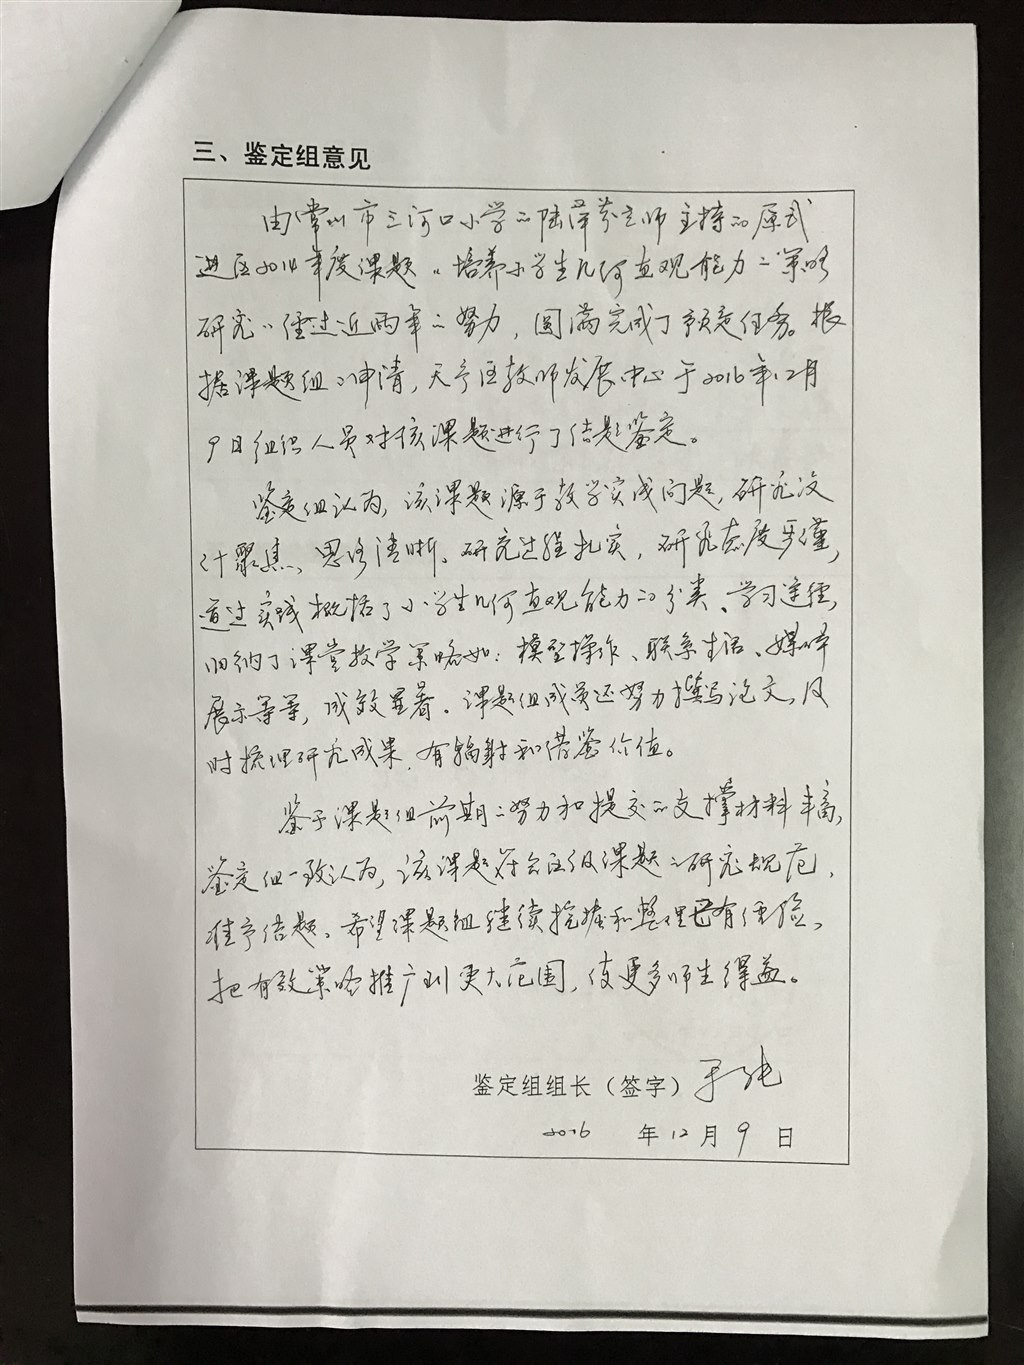 三、鉴定组意见
由常州市三河口小学的陆泽芬老师主持的原武
进区2014年度课题“培养小学生几何直观能力的策略
研究”经过近两年的努力，圆满完成了预定任务。根
据课题组的申请，天宁区教师发展中心于2016年12月
9日组织人员对该课题进行了结题鉴定。
鉴定组认为，该课题源于教学实践问题，研究设
计聚焦、思路清晰、研究过程扎实，研究态度严谨，
通过实践概括了小学生几何直观能力的分类、学习途径，
归纳了课堂教学策略如：模型操作、联系生活、媒体
展示等等，成效显著。课题组成员还努力撰写论文，及
时梳理研究成果，有辐射和借鉴价值。
鉴于课题组前期的努力和提交的支撑材料丰富，
鉴定组一致认为，该课题符合区级课题的研究规范，
准予结题。希望课题组继续挖掘和整理已有经验，
把有效策略推广到更大范围，使更多师生得益。
鉴定组组长（签字）
2016 年 12 月 9 日